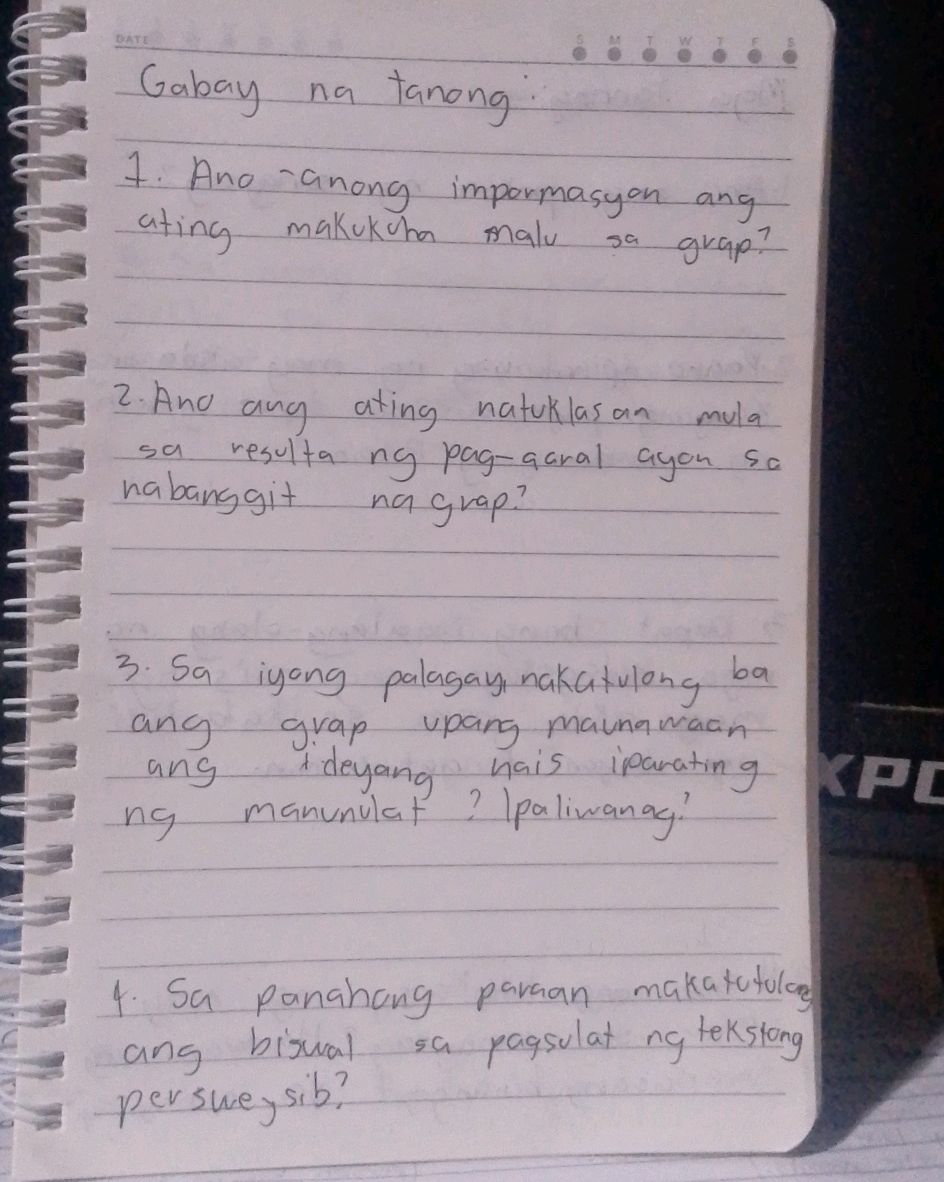 DATE
S M T W T F S
Gabay na tanong:
1. Ano-anong impormasyon ang
ating makukuha malu sa grap?
2. Ano ang ating natuklasan mula
sa resulta ng pag-aaral ayon sa
nabanggit na grap?
3. Sa iyong palagay, nakatulong ba
ang grap upang maunawaan
ang ideyang nais iparating
ng manunulat? Ipaliwanag?
4. Sa panahong paraan makatutulong
ang biswal sa pagsulat ng tekstong
persweysib?
XPG